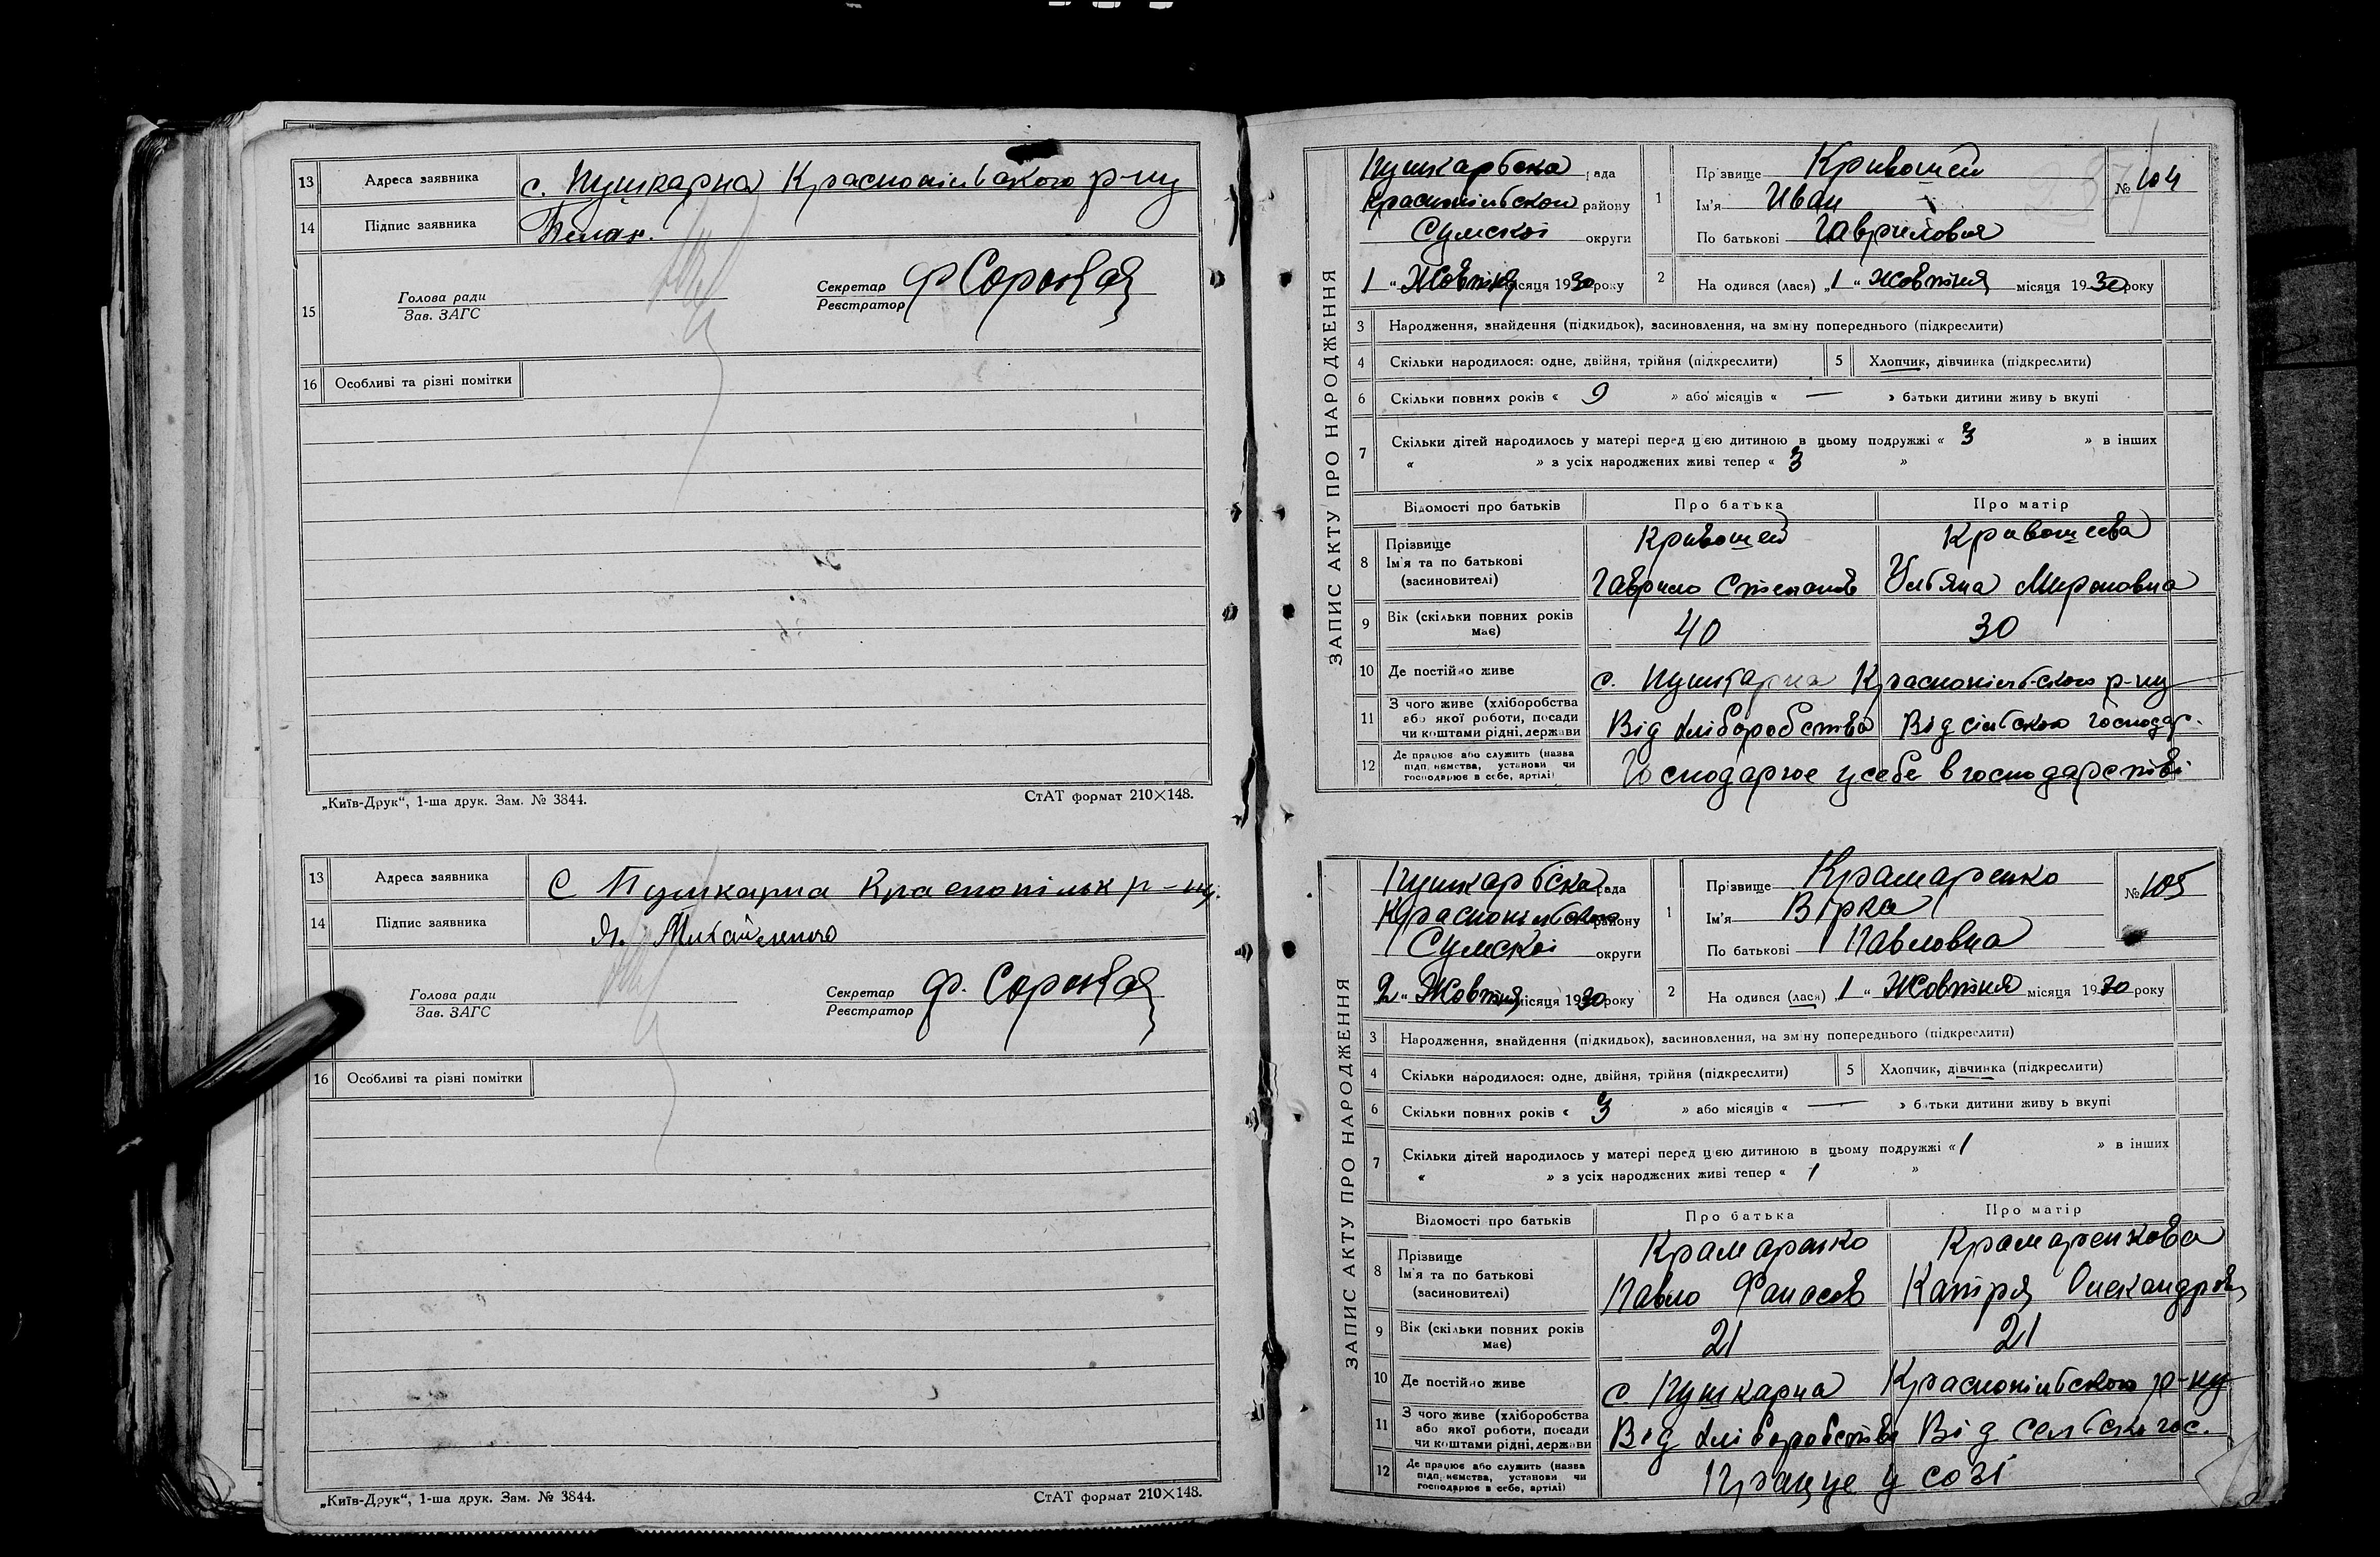 13 Адреса заявника с. Пушкарна Краснопільського р-ну
14 Підпис заявника
15 Голова ради
Зав. ЗАГС
Секретар Ф Сорокай
Реєстратор
16 Особливі та різні помітки
„Київ-Друк“, 1-ша друк. Зам. № 3844. СтАТ формат 210×148.
13 Адреса заявника С Пушкарна Краснопільк р-ну.
14 Підпис заявника
Голова ради
Зав. ЗАГС
Секретар Ф. Сорокай
Реєстратор
16 Особливі та різні помітки
„Київ-Друк“, 1-ша друк. Зам. № 3844. СтАТ формат 210×148.
ЗАПИС АКТУ ПРО НАРОДЖЕННЯ
Пушкарьска рада
Краснопільского району
Сумскої округи
1 “ Жовтня місяця 1930 року
1 Прізвище Кривошей
№ 104
Ім'я Иван
По батькові Гаврилович
2 На одився (лася) „1“ жовтня місяця 1930 року
3 Народження, знайдення (підкидьок), засиновлення, на зміну попереднього (підкреслити)
4 Скільки народилося: одне, двійня, трійня (підкреслити) 5 Хлопчик, дівчинка (підкреслити)
6 Скільки повних років « 9 » або місяців « — » батьки дитини живу ь вкупі
7 Скільки дітей народилось у матері перед цією дитиною в цьому подружжі « 3 » в інших
« » з усіх народжених живі тепер « 3 »
Відомості про батьків Про батька Про матір
8 Прізвище Кривошей Кривошеева
Ім'я та по батькові
(засиновителі) Гаврило Степанов Ульяна Мироновна
9 Вік (скільки повних років має) 40 30
10 Де постійно живе с. Пушкарна Краснопільского р-ну
11 З чого живе (хліборобства
або якої роботи, посади
чи коштами рідні, держави Від хліборобства Від сільского господар.
12 Де працює або служить (назва
підп. ємства, установи чи
господарює в себе, артілі) Господарює у себе в господарстві
ЗАПИС АКТУ ПРО НАРОДЖЕННЯ
Пушкарьска рада
Краснопільского району
Сумскої округи
2 “ Жовтня місяця 1930 року
1 Прізвище Крамаренко
№ 105
Ім'я Вірка
По батькові Павловна
2 На одився (лася) „1“ Жовтня місяця 1930 року
3 Народження, знайдення (підкидьок), засиновлення, на зміну попереднього (підкреслити)
4 Скільки народилося: одне, двійня, трійня (підкреслити) 5 Хлопчик, дівчинка (підкреслити)
6 Скільки повних років « 3 » або місяців « — » батьки дитини живу ь вкупі
7 Скільки дітей народилось у матері перед цією дитиною в цьому подружжі « 1 » в інших
« » з усіх народжених живі тепер « 1 »
Відомості про батьків Про батька Про матір
8 Прізвище Крамаренко Крамаренкова
Ім'я та по батькові
(засиновителі) Павло Фанасов Катіря Олександров
9 Вік (скільки повних років має) 21 21
10 Де постійно живе с. Пушкарна Краснопільского р-ну
11 З чого живе (хліборобства
або якої роботи, посади
чи коштами рідні, держави Від хліборобства Від сельского гос.
12 Де працює або служить (назва
підп. ємства, установи чи
господарює в себе, артілі) Працує у созі